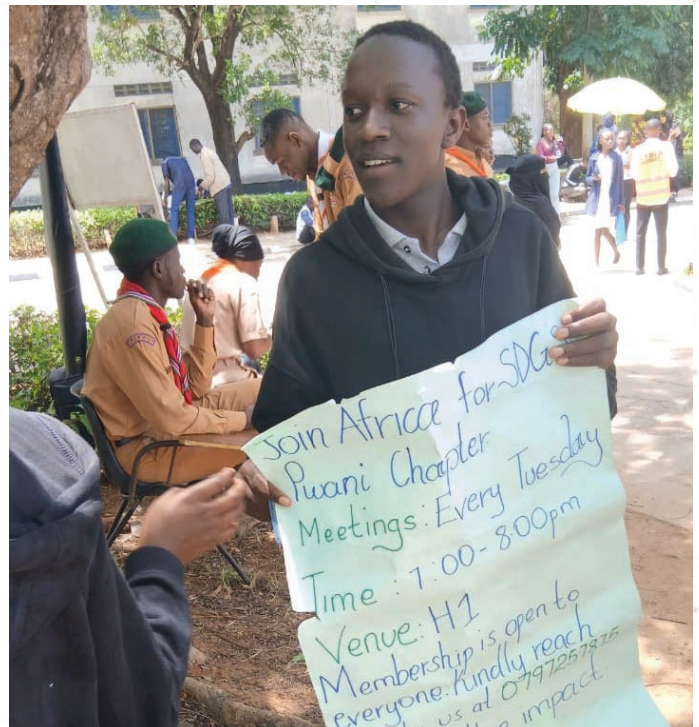 Join Africa for SDGs
Pwani Chapter
Meetings: Every Tuesday
Time : 7:00-8:00pm
Venue: H1
Membership is open to
everyone. Kindly reach
us at 0797257875
impact.